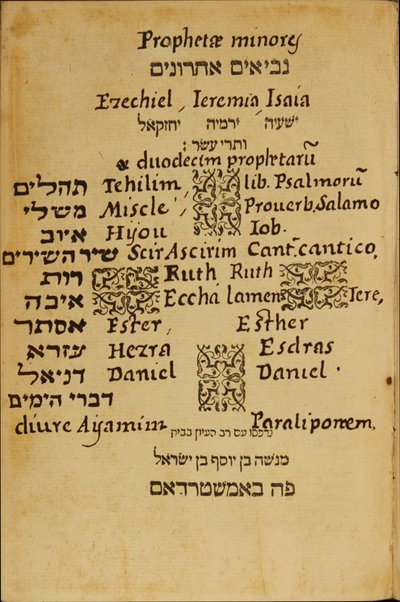 Prophetæ minores
נביאים אחרונים
Ezechiel, Ieremia, Isaia
ישעיה ירמיה יחזקאל
ותרי עשר:
& duodecim prophetarũ
תהלים Tehilim lib. Psalmorũ
משלי Miscle, Proverb, Salamo
איוב Hijou Iob.
שיר השירים Scir Ascirim Cant. cantico,
רות Ruth Ruth
איכה Eccha lamen Iere,
אסתר Ester, Esther
עזרא Hezra Esdras
דניאל Daniel Daniel
דברי הימים
diure Ayamim Paraliponem,
נדפסו עם רב העיון בבית
מנשה בן יוסף בן ישראל
פה באמשטרדאם